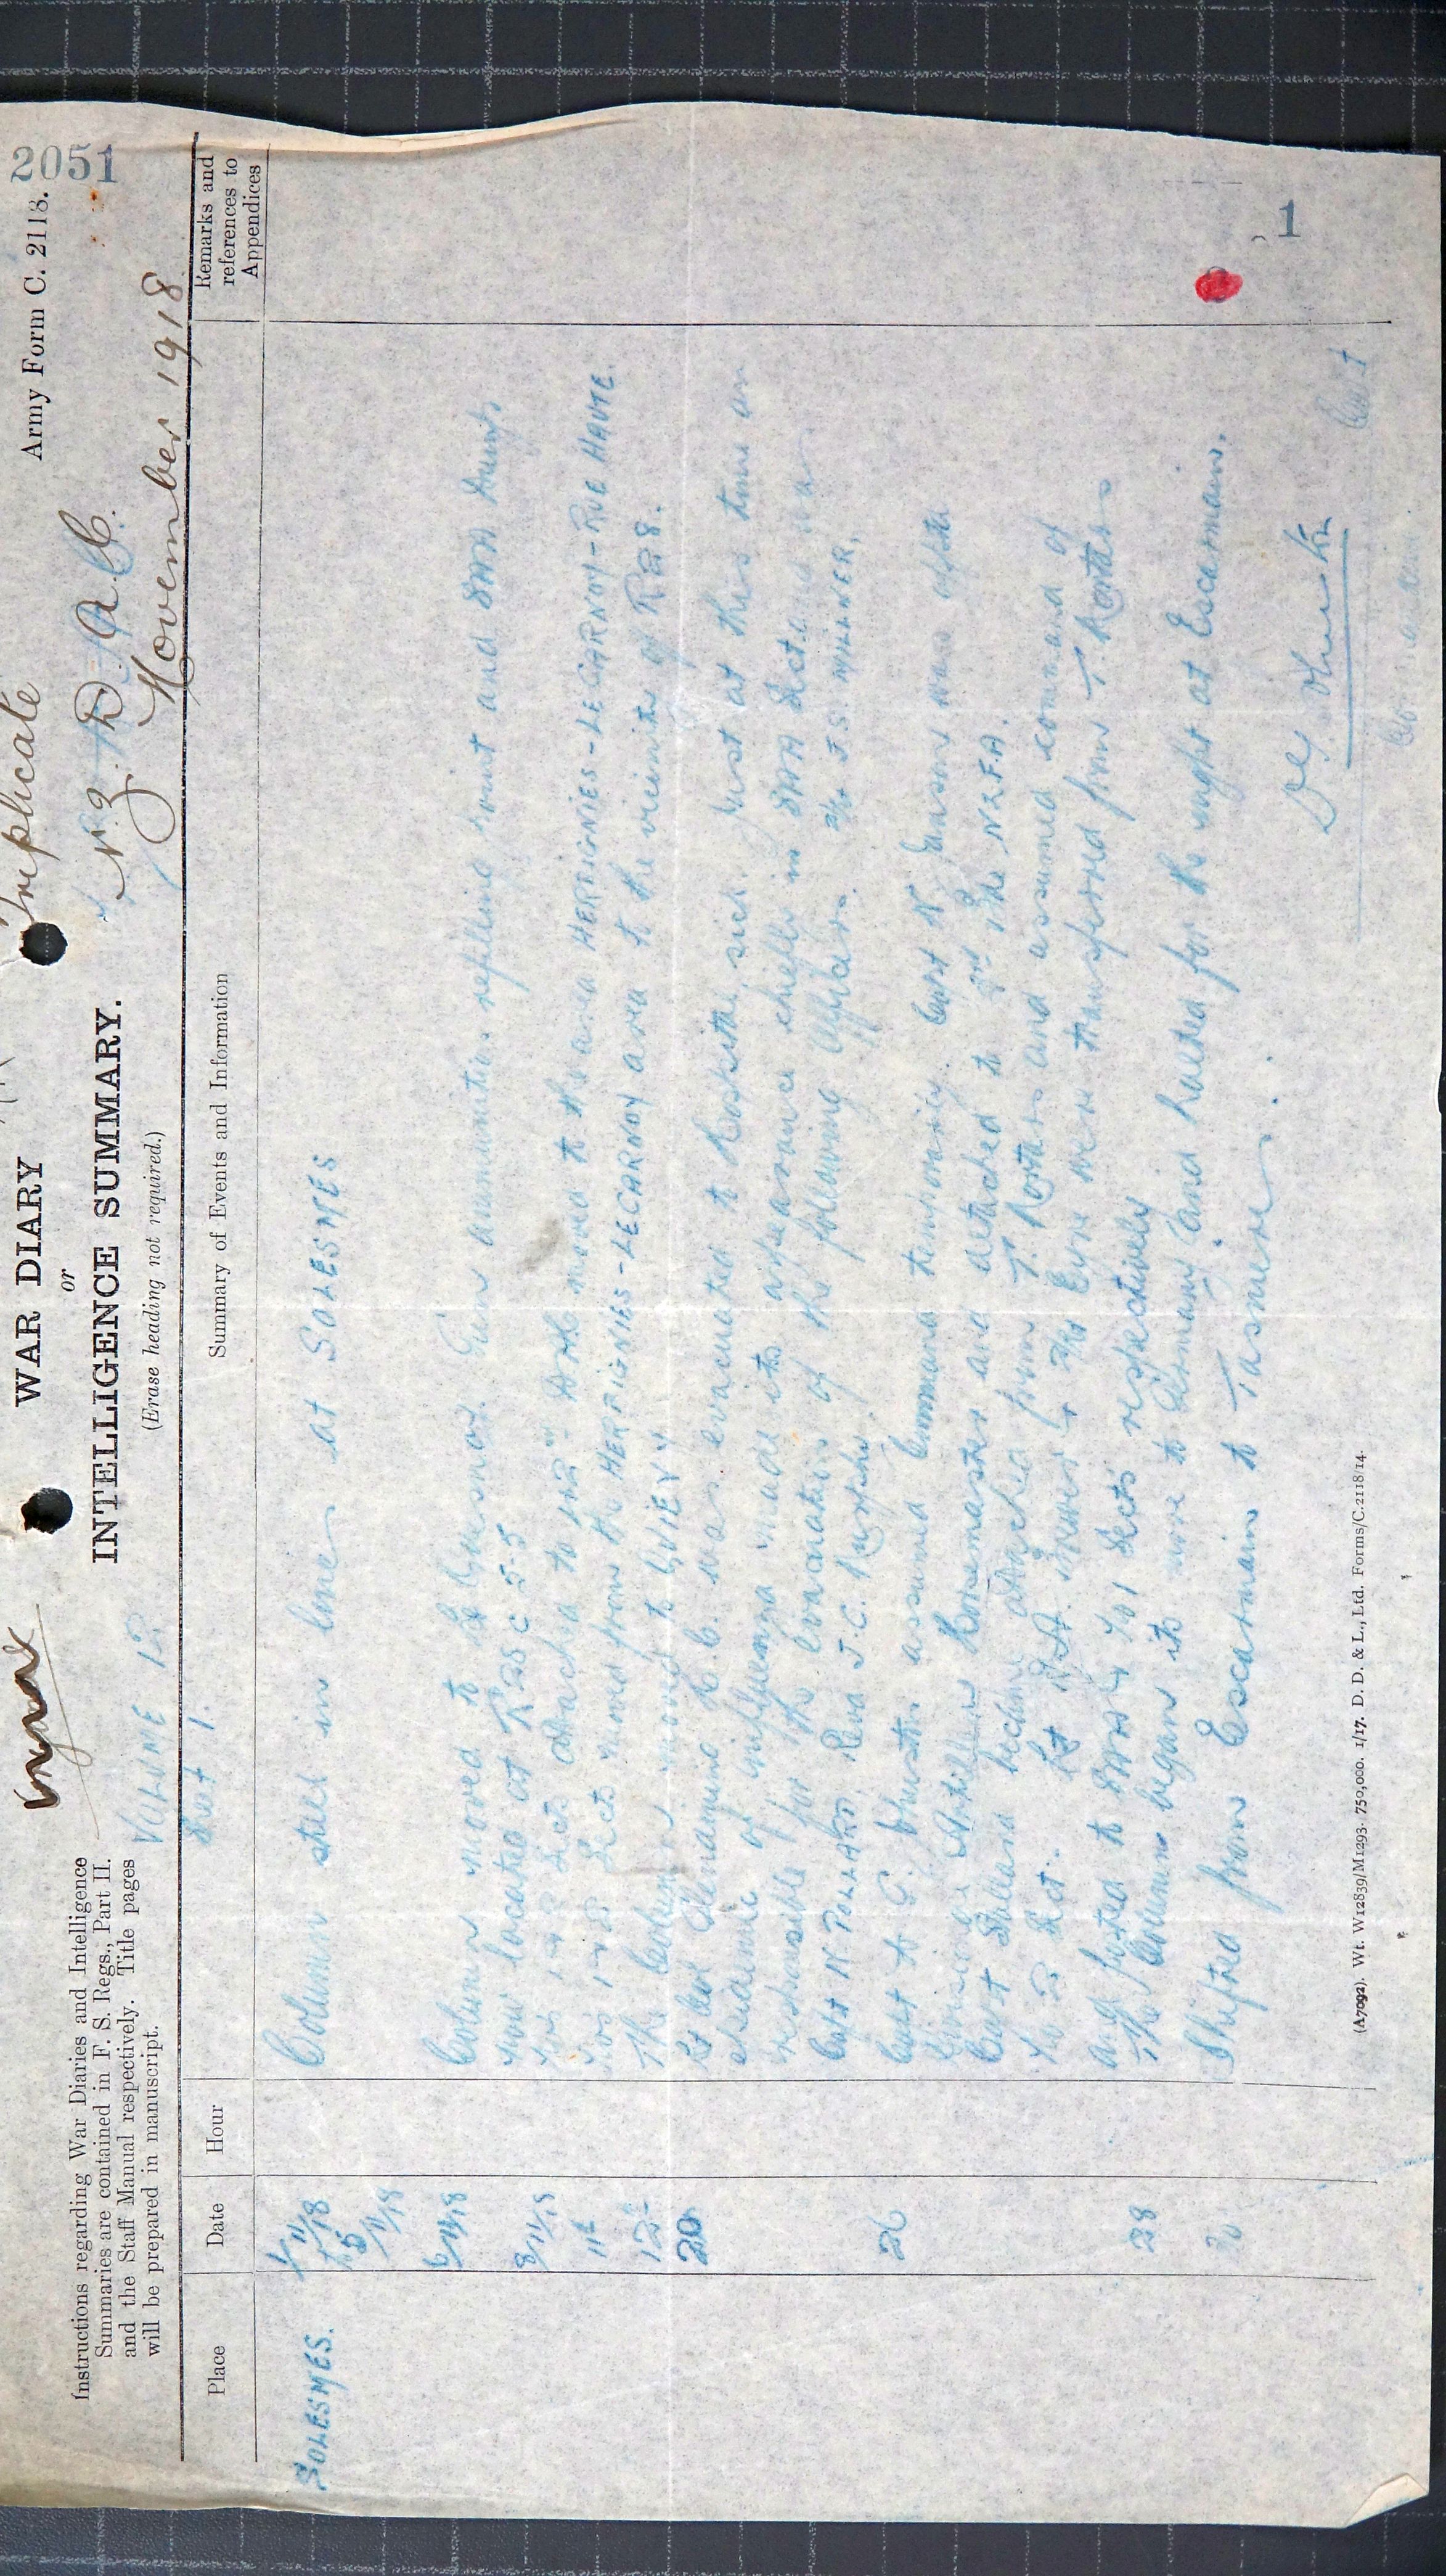 2051
Army Form C. 2118.
Triplicate
WAR DIARY
or
INTELLIGENCE SUMMARY.
(Erase heading not required.)
N.Z. D. A. C.
November 1918
VOLUME 12
Sheet 1.
Instructions regarding War Diaries and Intelligence
Summaries are contained in F. S. Regs., Part II.
and the Staff Manual respectively. Title pages
will be prepared in manuscript.
Place
Date
Hour
Summary of Events and Information
Remarks and
references to
Appendices
SOLESMES.
1/11/18
to 5/11/18
Column still in lines at SOLESMES
6/11/18
Column moved to Le Quesnoy. Gun ammunition refilling point and SAA Dump
now located at R 28 C 5.5
8/11/18
Nos 1 & 2 Sects attached to moved to the area HERBIGNIES - LE CARNOY - RUE HAUTE.
11th
Nos 1 & 2 Sects moved from the HERBIGNIES - LE CARNOY area to the vicinity of R 28.
12th
The Column moved to QUIEVY
20
Lt Col N.C. was evacuated to Hospital, sick. Just at this time an
epidemic of influenza made its appearance chiefly in SAA Sect. and was
responsible for the evacuation of the following officers. 2/Lt J.S. MILLNER,
Capt N POLLARD, Rev'd J.C. Murphy.
26
Capt assumed Command temporarily. Capt N was appointed
Artillery Horsemaster and attached to 3rd Bde N.Z.F.A.
Capt became attached from T. Mortars and assumed command of
No 2 Sect. Lt & 2/Lt were transferred from T Mortars
and posted to SAA & No 1 Sects respectively
28
The Column began its move to Germany and halted for the night at Escarmain.
30
Shifted from Escarmain to Tasniere.
Capt
(A7092). Wt. W12839/M1293. 750,000. 1/17. D. D. & L., Ltd. Forms/C.2118/14.
1